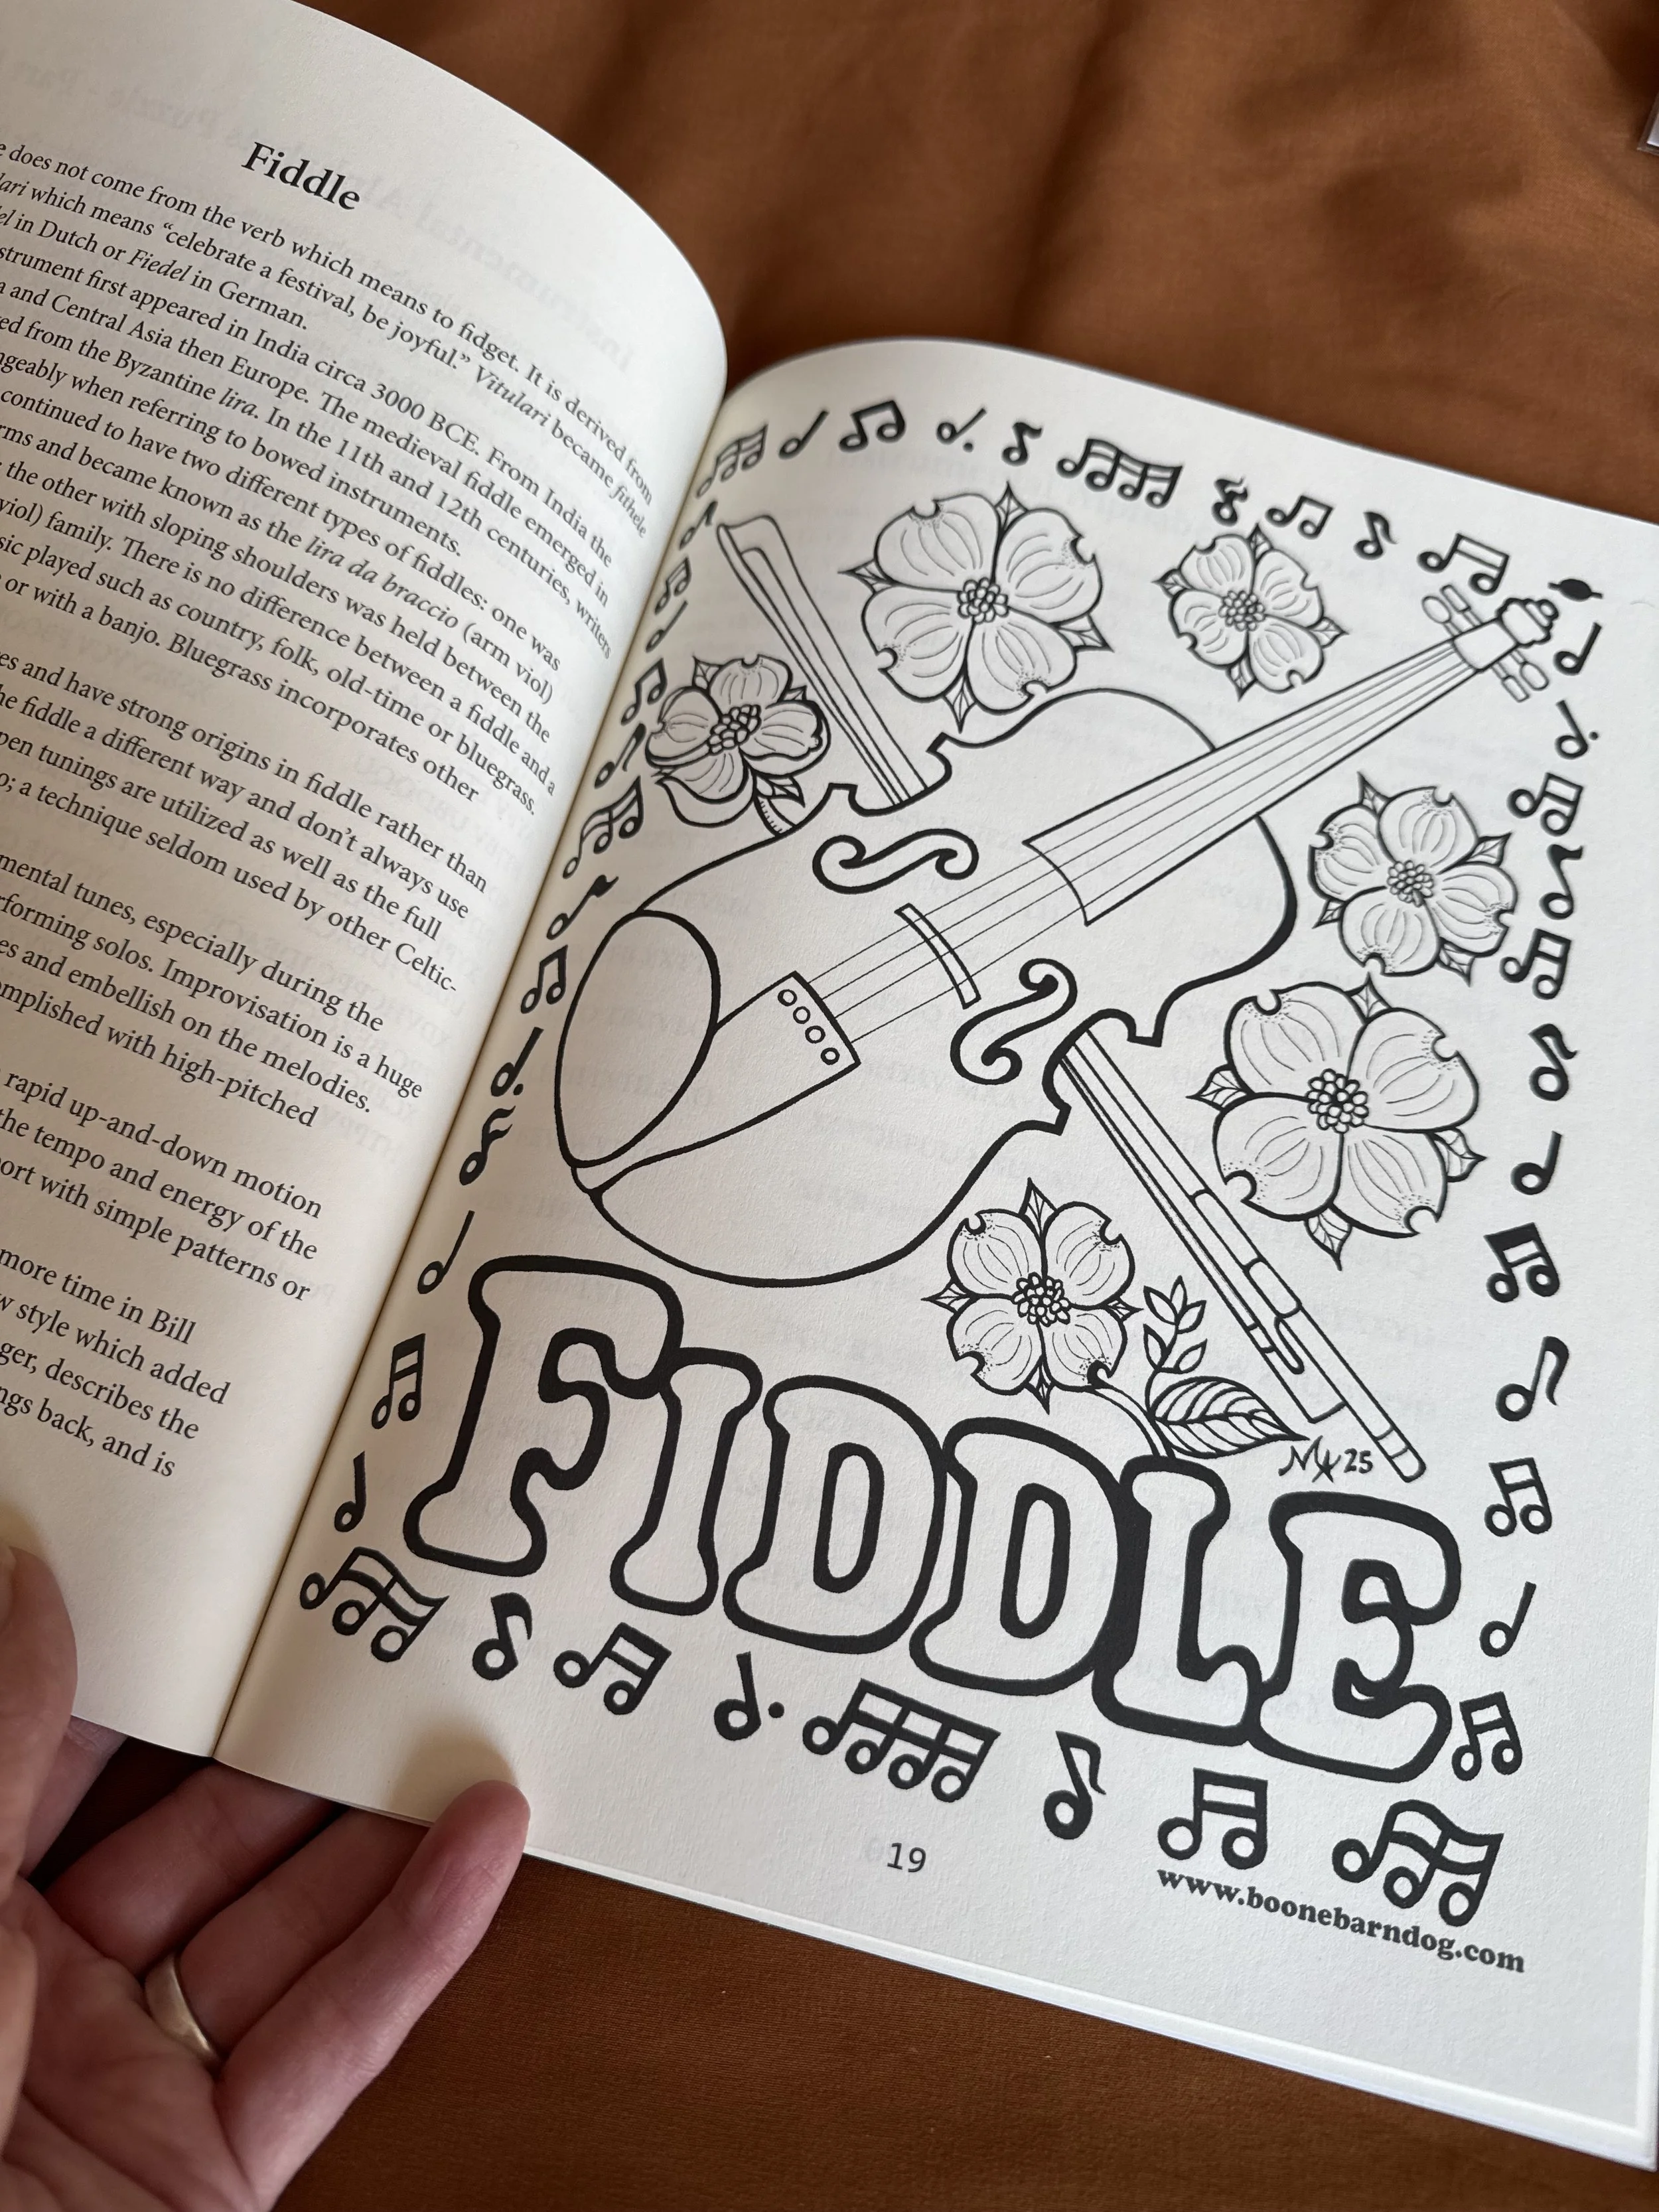 Fiddle
does not come from the verb which means to fidget. It is derived from
which means “celebrate a festival, be joyful.” Vitulari became fithele
in Dutch or Fiedel in German.
first appeared in India circa 3000 BCE. From India the
and Central Asia then Europe. The medieval fiddle emerged in
from the Byzantine lira. In the 11th and 12th centuries, writers
when referring to bowed instruments.
continued to have two different types of fiddles: one was
and became known as the lira da braccio (arm viol)
the other with sloping shoulders was held between the
viol) family. There is no difference between a fiddle and a
played such as country, folk, old-time or bluegrass.
or with a banjo. Bluegrass incorporates other
and have strong origins in fiddle rather than
fiddle a different way and don’t always use
tunings are utilized as well as the full
a technique seldom used by other Celtic-
tunes, especially during the
solos. Improvisation is a huge
and embellish on the melodies.
with high-pitched
rapid up-and-down motion
the tempo and energy of the
with simple patterns or
more time in Bill
style which added
describes the
back, and is
FIDDLE
25
19
www.boonebarndog.com